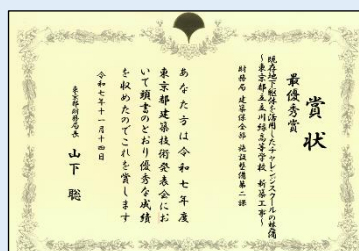 賞状
最優秀賞
既存地下躯体を活用したチャレンジスクールの整備
～東京都立立川緑高等学校 新築工事～
財務局 建築保全部 施設整備第二課
あなた方は令和七年度
東京都建築技術発表会にお
いて頭書のとおり優秀な成績
を収めたのでこれを賞します
令和七年十一月十四日
東京都財務局長 山下 聡